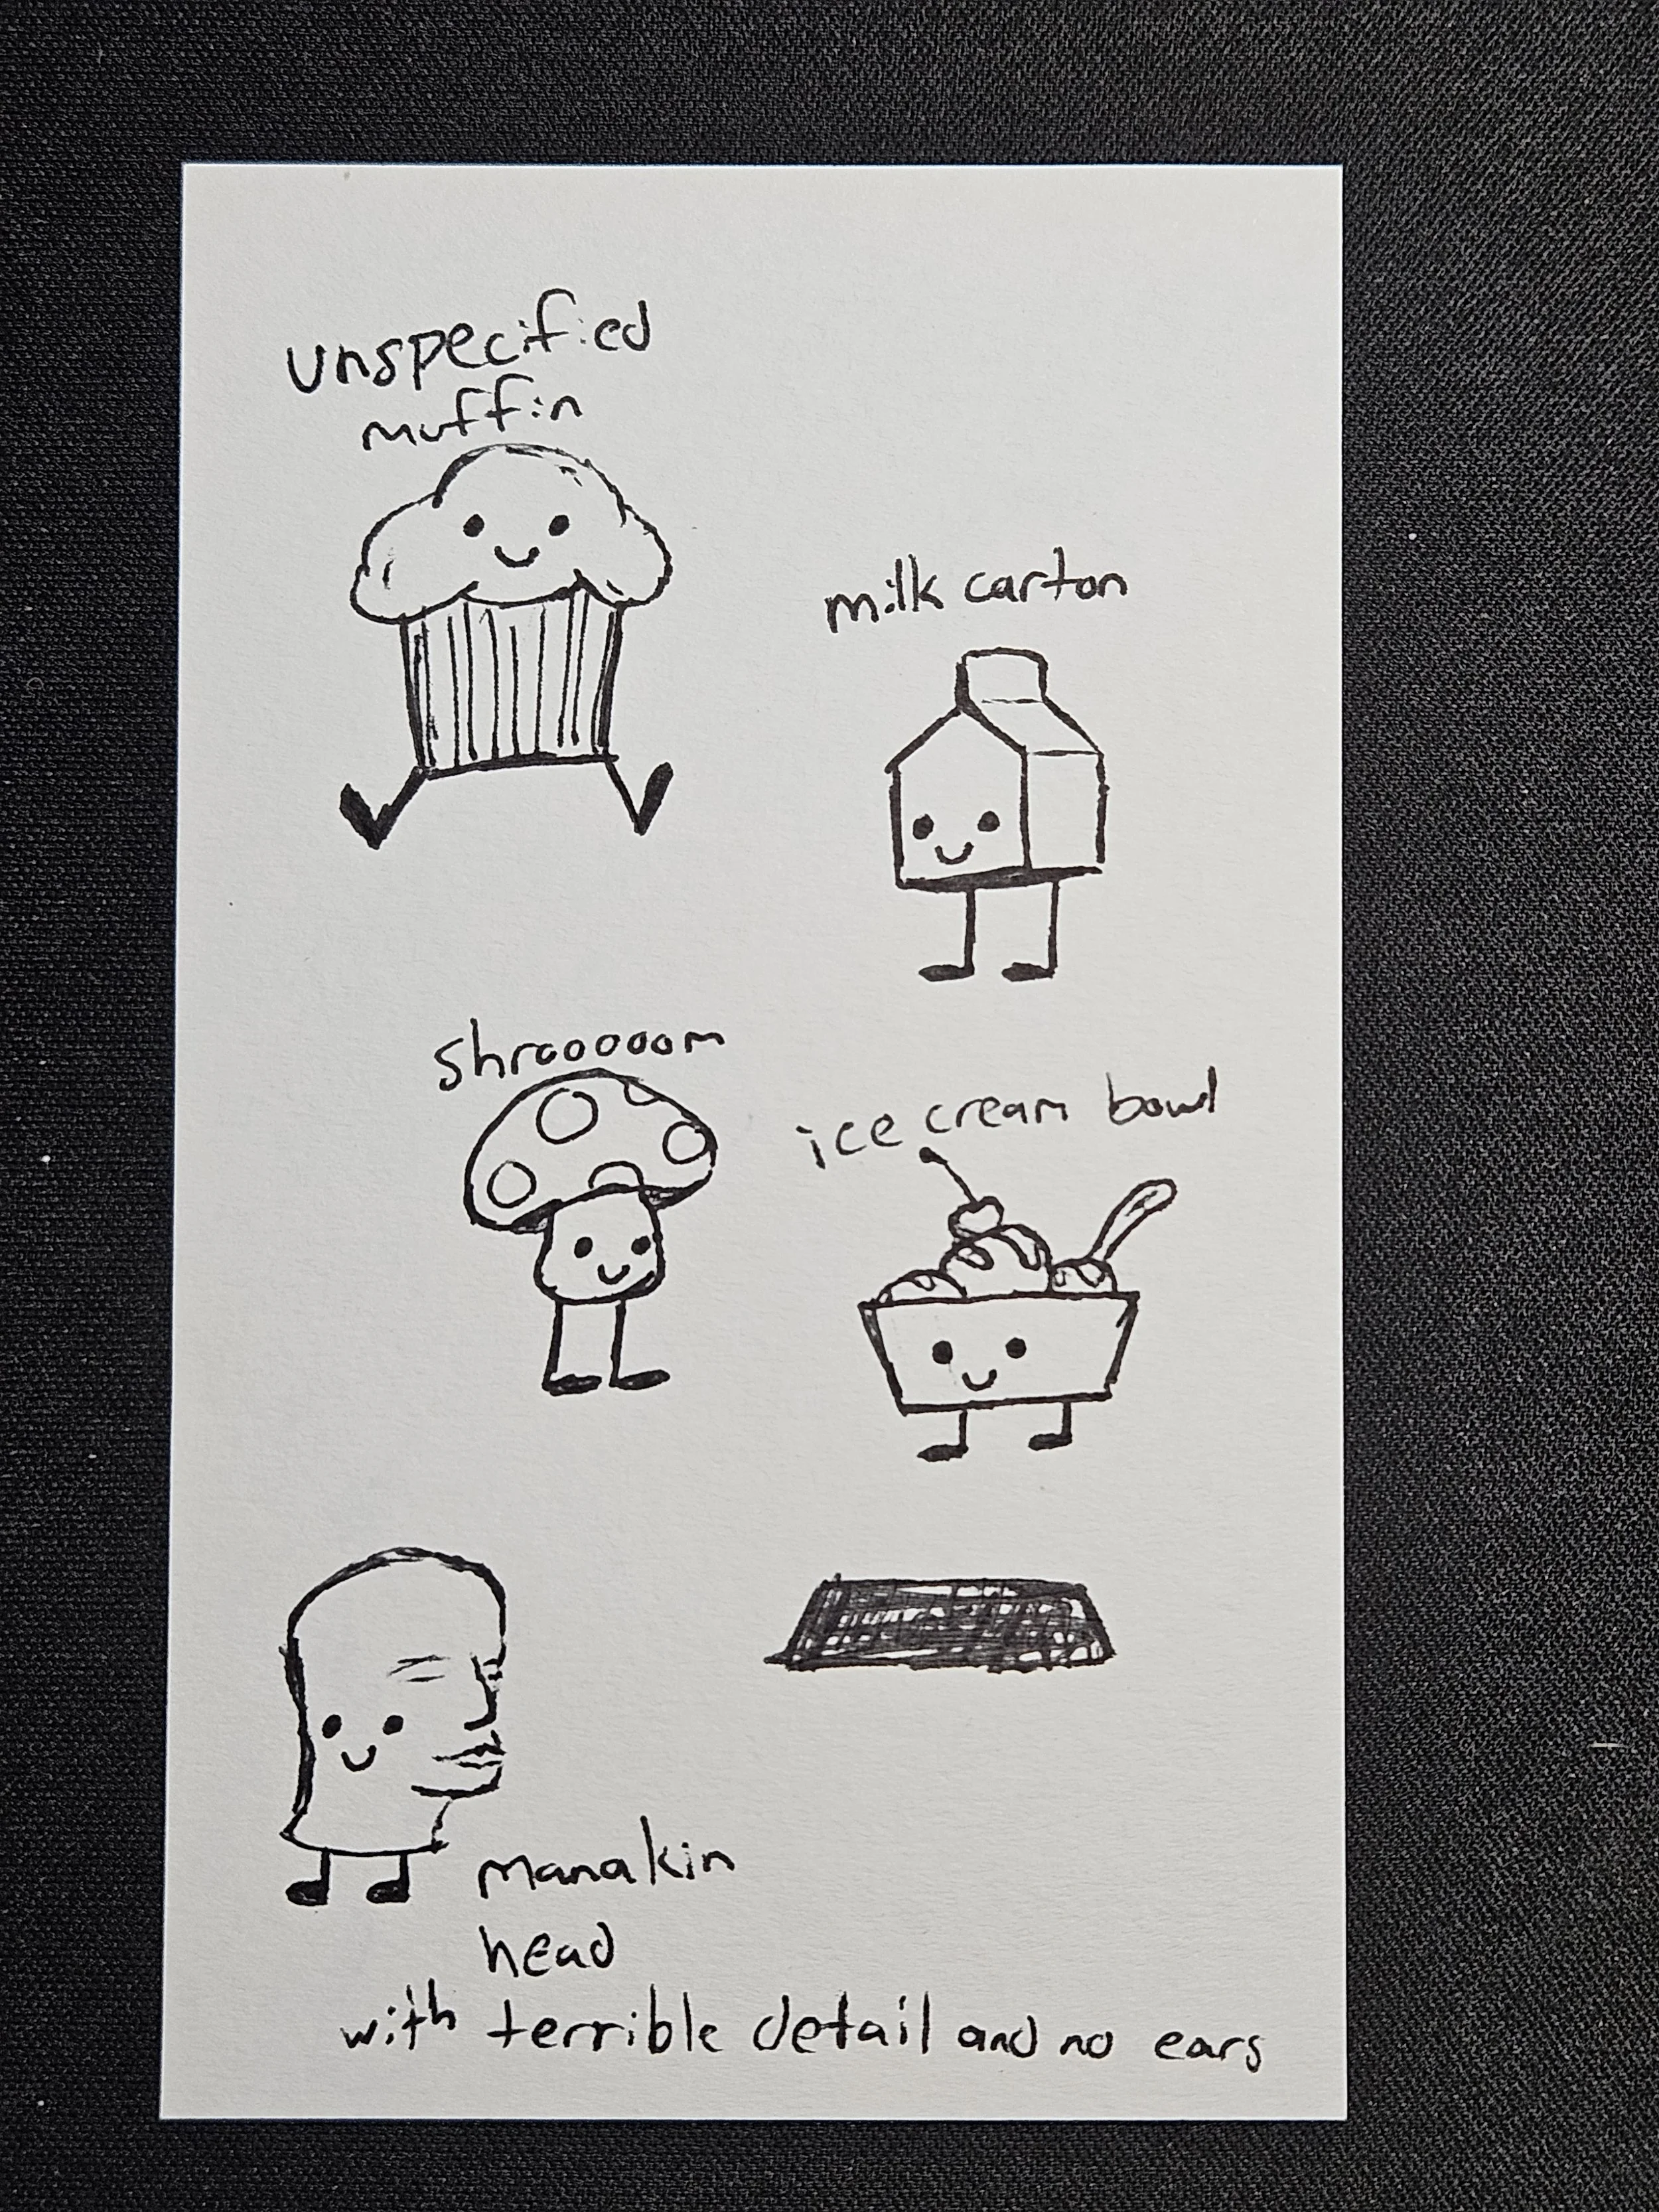 unspecified
muffin
milk carton
shrooooom
ice cream bowl
manakin
head
with terrible detail and no ears